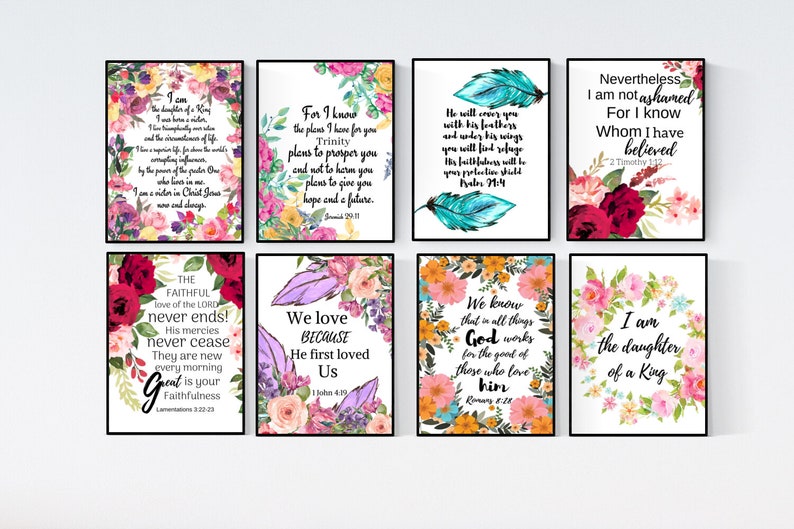 I am
the daughter of a King
I was born a victor,
I live triumphantly over satan
and the circumstances of life.
I live a superior life, far above the world's
corrupting influences,
by the power of the greater One
who lives in me.
I am a victor in Christ Jesus
now and always.
For I know
the plans I have for you
Trinity
plans to prosper you
and not to harm you
plans to give you
hope and a future.
Jeremiah 29:11
He will cover you
with his feathers
and under his wings
you will find refuge
His faithfulness will be
your protective shield
Psalm 91:4
Nevertheless
I am not ashamed
For I know
Whom I have
believed
2 Timothy 1:12
THE
FAITHFUL
love of the LORD
never ends!
His mercies
never cease
They are new
every morning
Great is your
Faithfulness
Lamentations 3:22-23
We love
BECAUSE
He first loved
Us
1 John 4:19
We know
that in all things
God works
for the good of
those who love
him
Romans 8:28
I am
the daughter
of a King